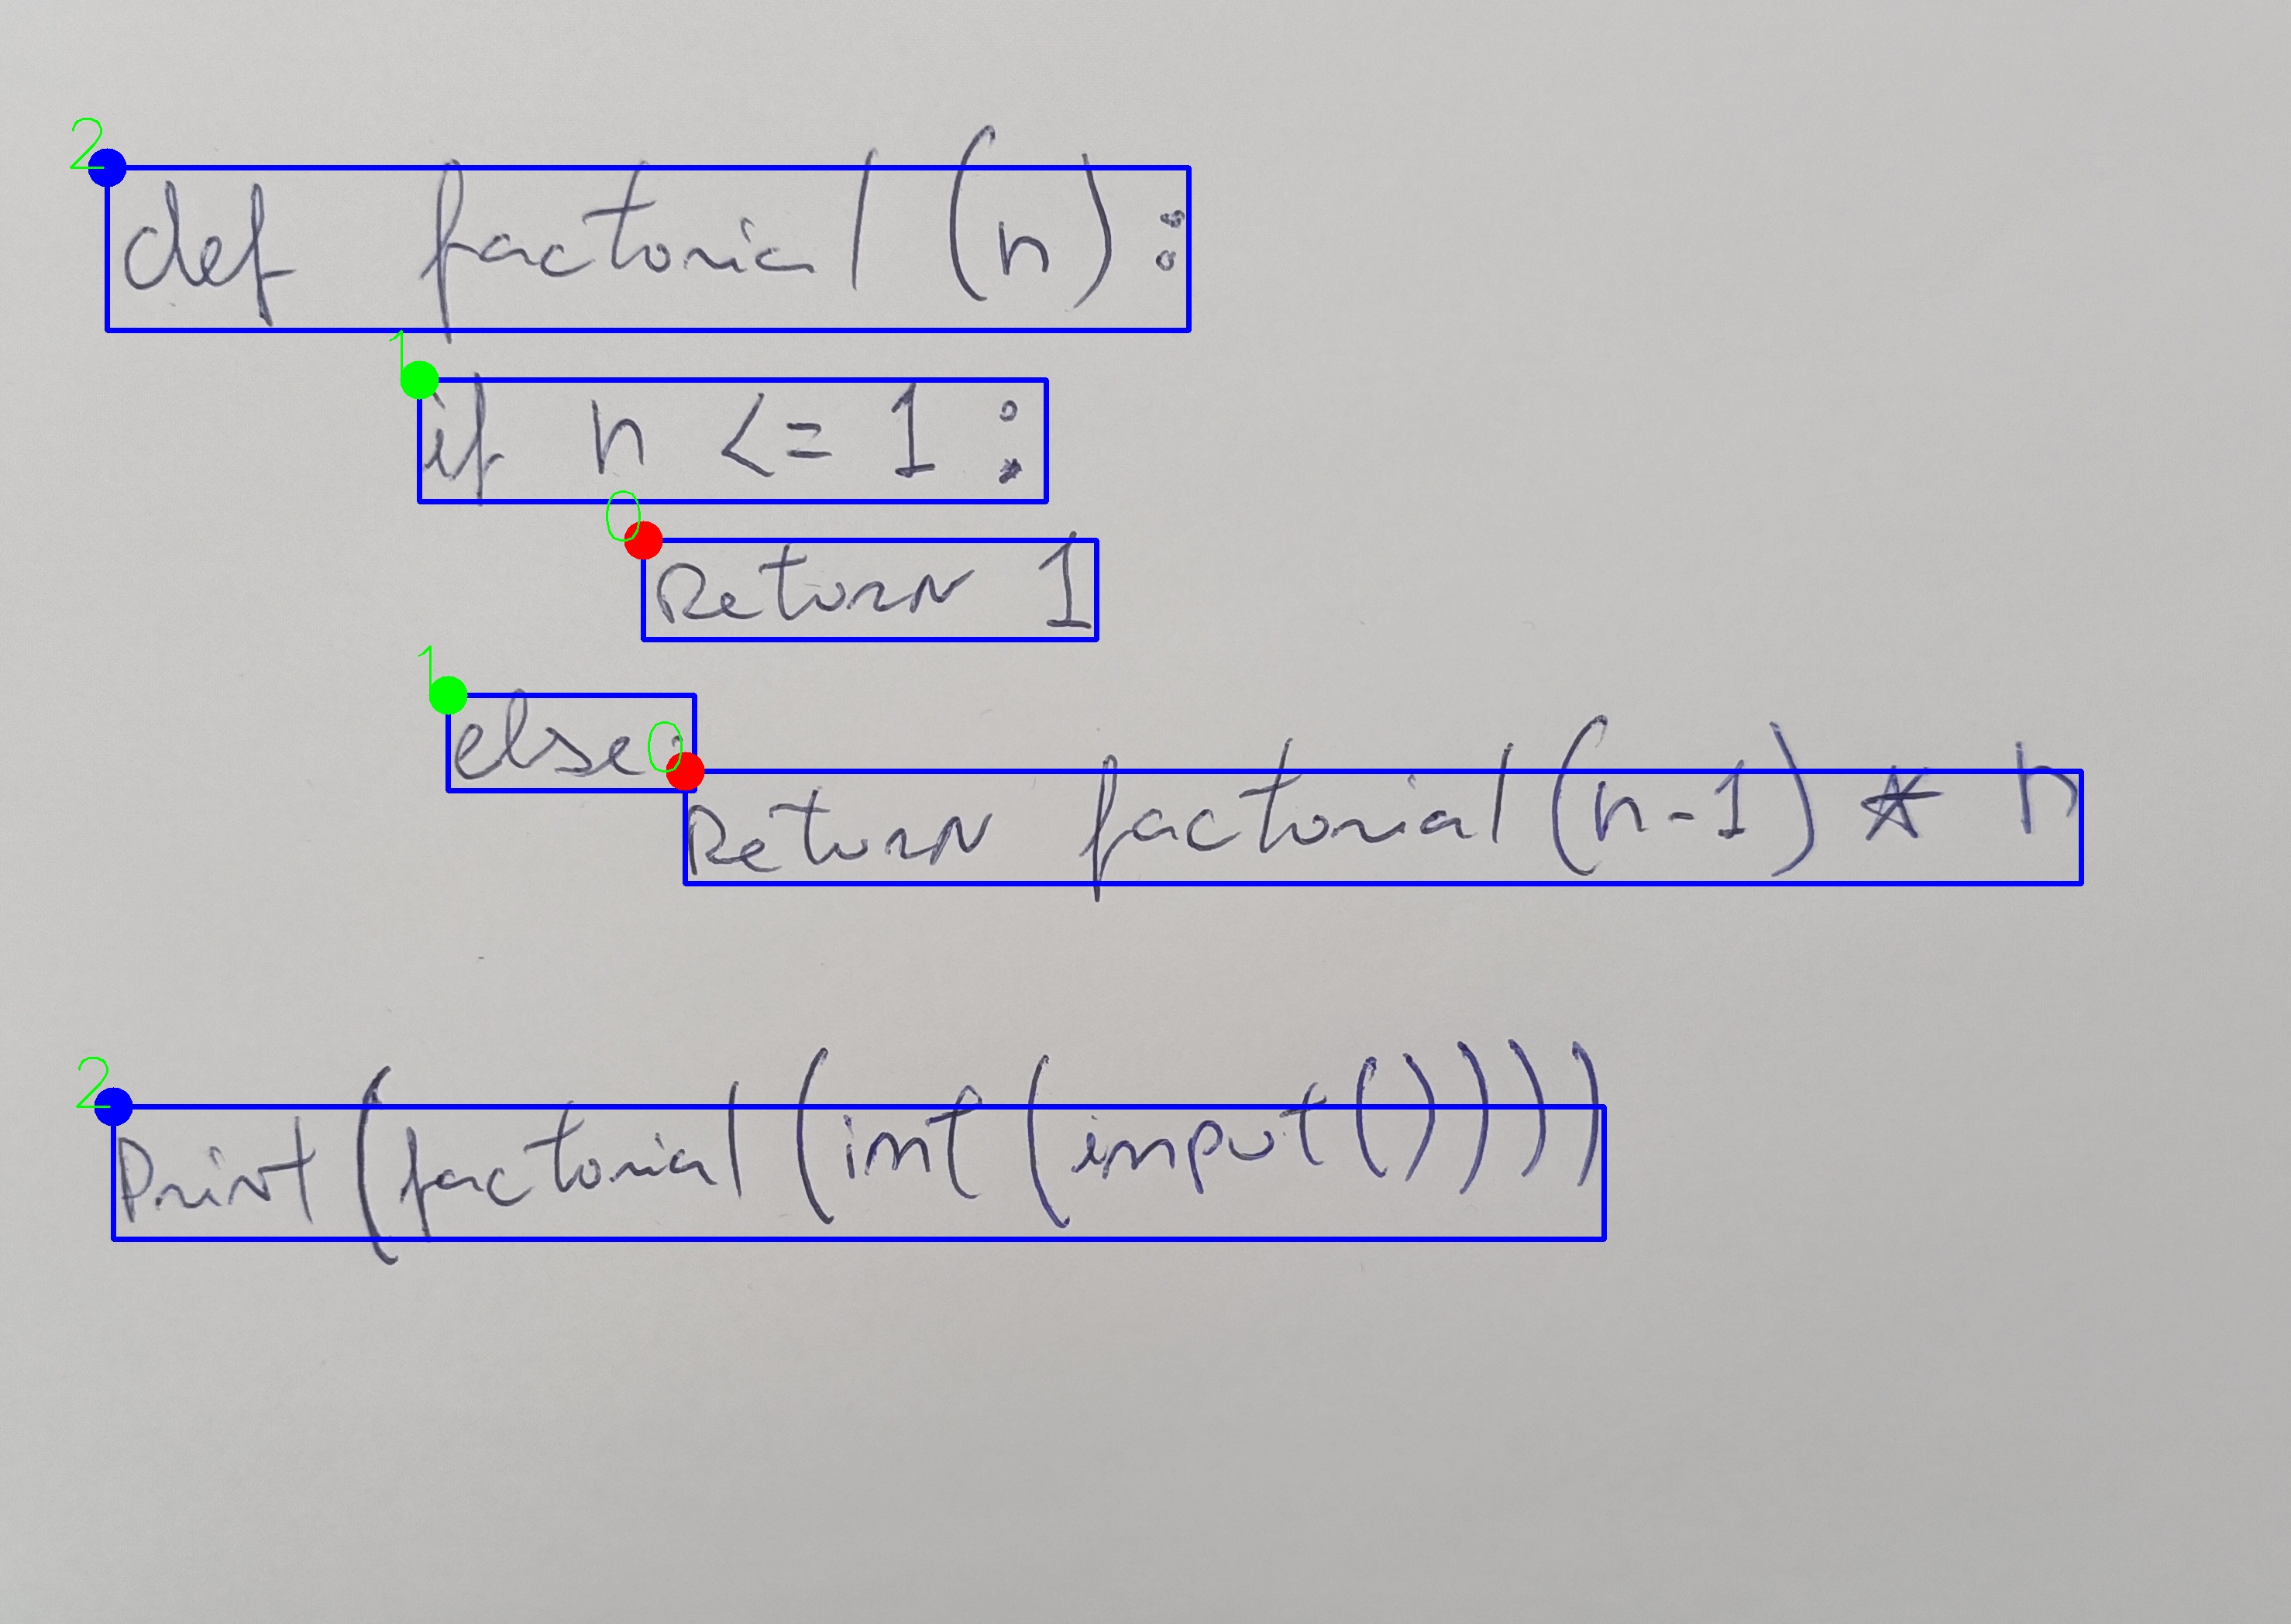 2
def factorial (n):
1
if n <= 1 :
0
Return 1
1
else:
0
Return factorial (n-1) * n
2
Print (factorial (int (input ())))